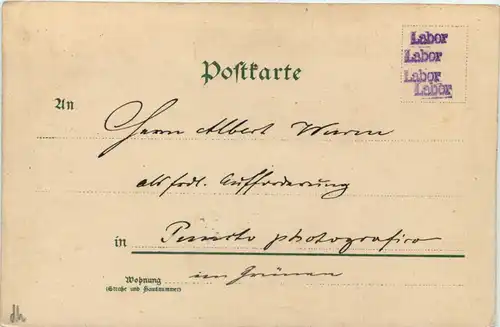 Labor
Labor
Labor
Labor
Postkarte
An
Herrn Albert Wurm
als frdl. Aufforderung
in Puncto photografico
im Grünen
Wohnung
(Straße und Hausnummer)
dh